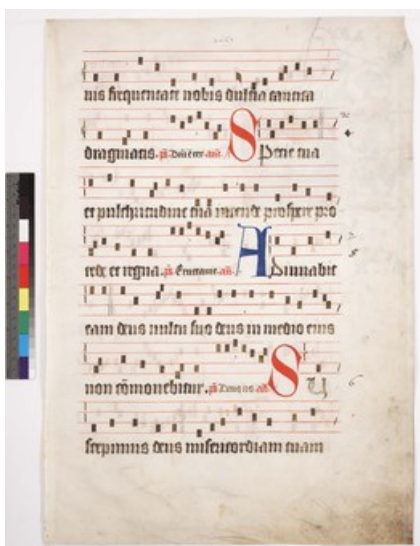 nis frequentate nobis dulcia cantica
dragmatis. ps. Dñi est tr̃a. añ. Specie tua
et pulchritudine tua intende prospere pro
cede et regna. ps. Eructauit. añ. Adiuuabit
eam deus uultu suo deus in medio eius
non cōmouebitur. ps. añ. Su
scepimus deus misericordiam tuam